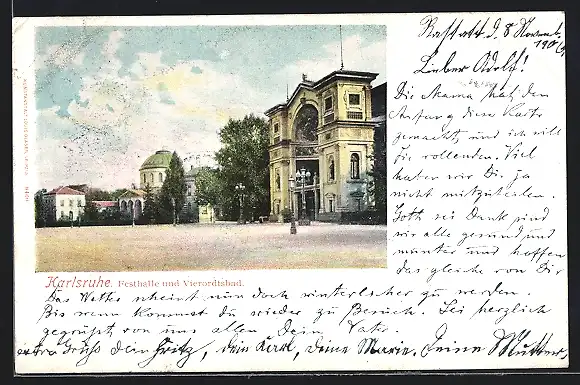 Rastatt d. 8 Novemb.
190
Lieber Adolf!
Die Mama hat den
Anfang dieser Karte
gemacht, und ich will
sie vollenden. Viel
haben wir Dir ja
nicht mitzuteilen.
Gott sei Dank sind
wir alle gesund und
munter und hoffen
das gleiche von Dir
Karlsruhe. Festhalle und Vierordtsbad.
Das Wetter scheint nun doch winterlicher zu werden
Bis wann kommst du wieder zu Besuch. Sei herzlich
gegrüßt von uns allen Dein Vater.
extra Gruß dein Fritz, dein Karl, deine Marie. Deine Mutter